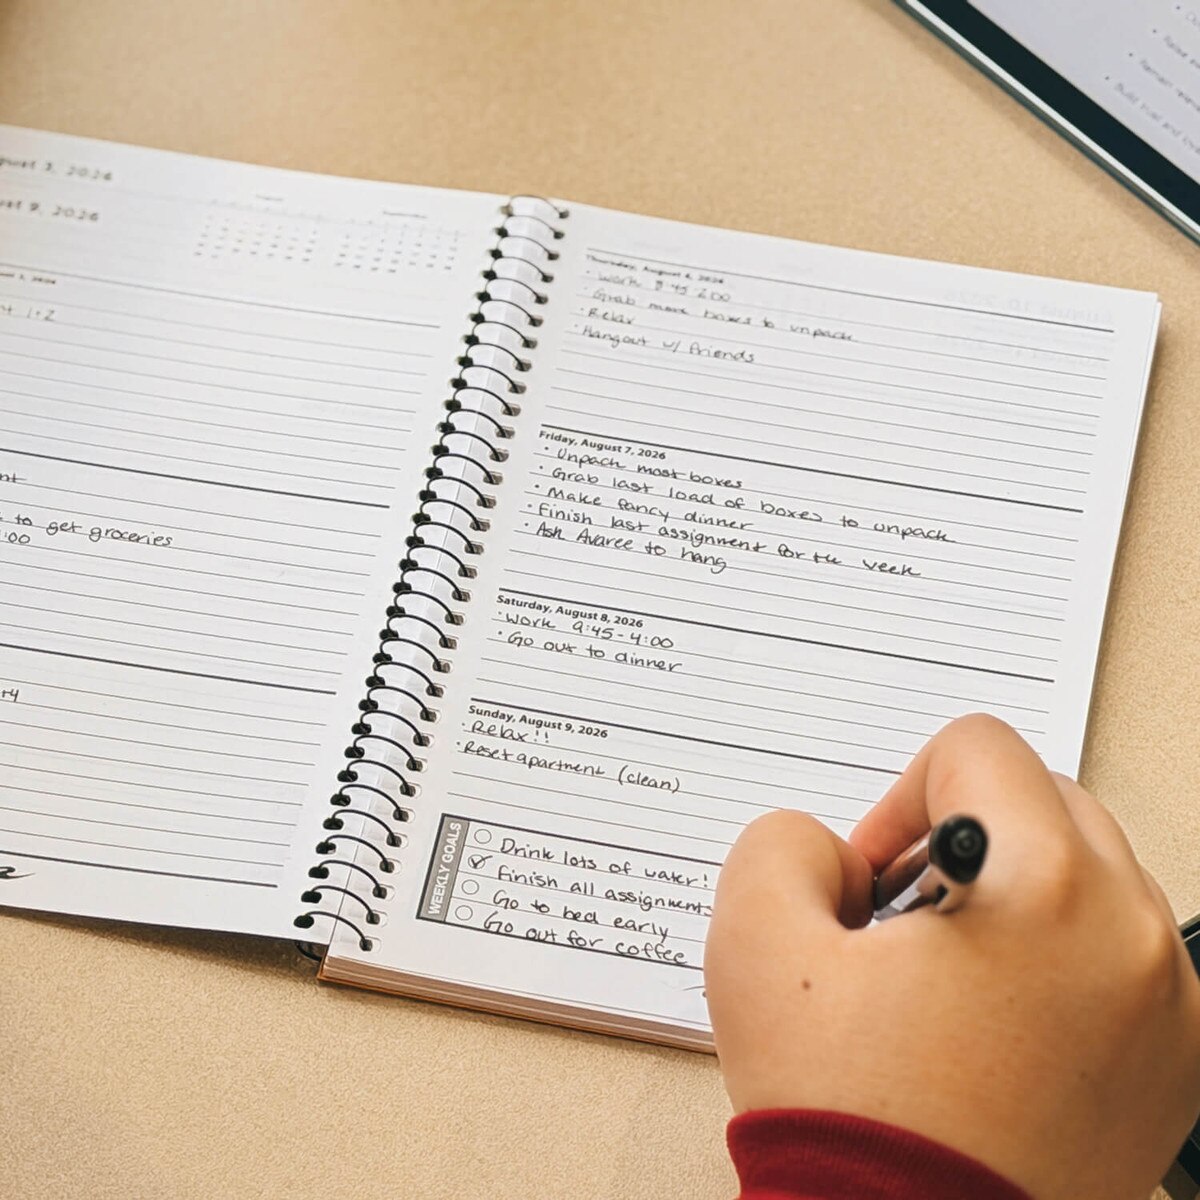 August 3, 2026
August 9, 2026
1+2
to get groceries
:00
+4
Thursday, August 6, 2026
· Work 8:45
· Grab more boxes to unpack
· Relax
· Hangout w/ friends
Friday, August 7, 2026
· Unpack most boxes
· Grab last load of boxes to unpack
· Make fancy dinner
· Finish last assignment for the week
· Ask Avaree to hang
Saturday, August 8, 2026
· Work 9:45-4:00
· Go out to dinner
Sunday, August 9, 2026
· Relax!!
· Reset apartment (clean)
WEEKLY GOALS
Drink lots of water!
Finish all assignments
Go to bed early
Go out for coffee